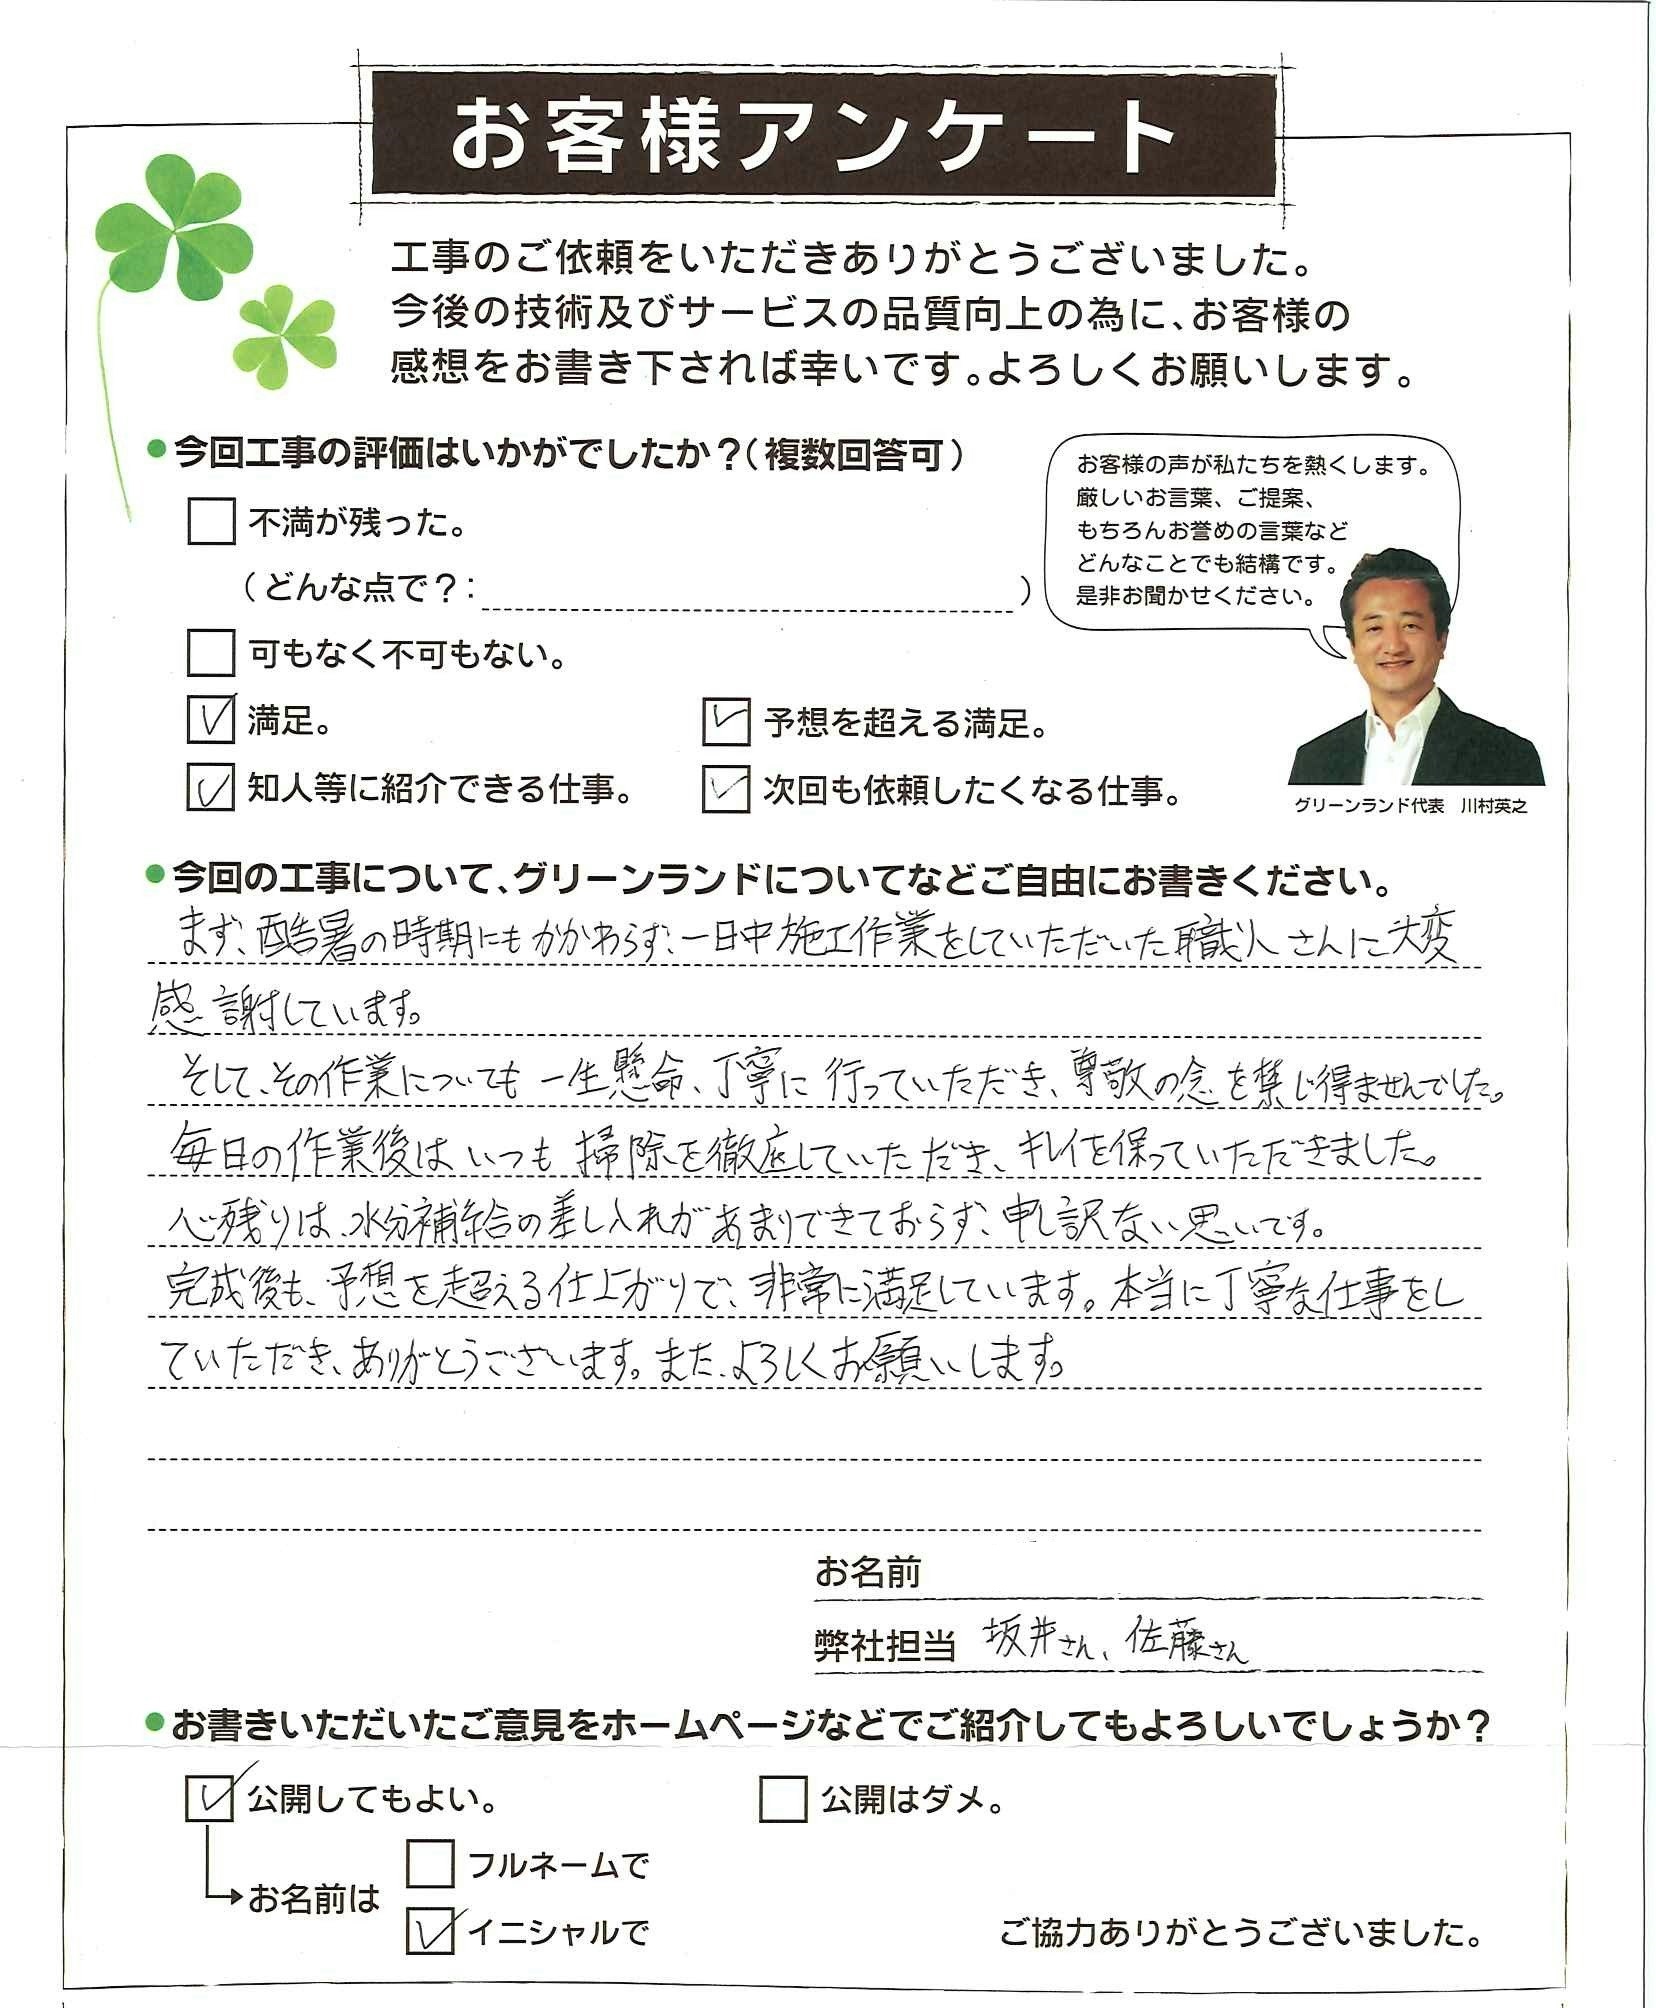 お客様アンケート
工事のご依頼をいただきありがとうございました。
今後の技術及びサービスの品質向上の為に、お客様の
感想をお書き下されれば幸いです。よろしくお願いします。
今回工事の評価はいかがでしたか？（複数回答可）
不満が残った。
（どんな点で？：　　　）
可もなく不可もない。
満足。
予想を超える満足。
知人等に紹介できる仕事。
次回も依頼したくなる仕事。
お客様の声が私たちを熱くします。
厳しいお言葉、ご提案、
もちろんお誉めの言葉など
どんなことでも結構です。
是非お聞かせください。
グリーンランド代表　川村英之
今回の工事について、グリーンランドについてなどご自由にお書きください。
まず、酷暑の時期にもかかわらず、一日中施工作業をしていただいた職人さんに大変
感謝しています。
そして、その作業についても一生懸命、丁寧に行っていただき、尊敬の念を禁じ得ませんでした。
毎日の作業後はいつも掃除を徹底していただき、キレイを保っていただきました。
心残りは、水分補給の差し入れがあまりできておらず、申し訳ない思いです。
完成後も、予想を超える仕上がりで、非常に満足しています。本当に丁寧な仕事をし
ていただき、ありがとうございます。また、よろしくお願いします。
お名前
弊社担当　坂井さん、佐藤さん
お書きいただいたご意見をホームページなどでご紹介してもよろしいでしょうか？
公開してもよい。
公開はダメ。
お名前は
フルネームで
イニシャルで
ご協力ありがとうございました。